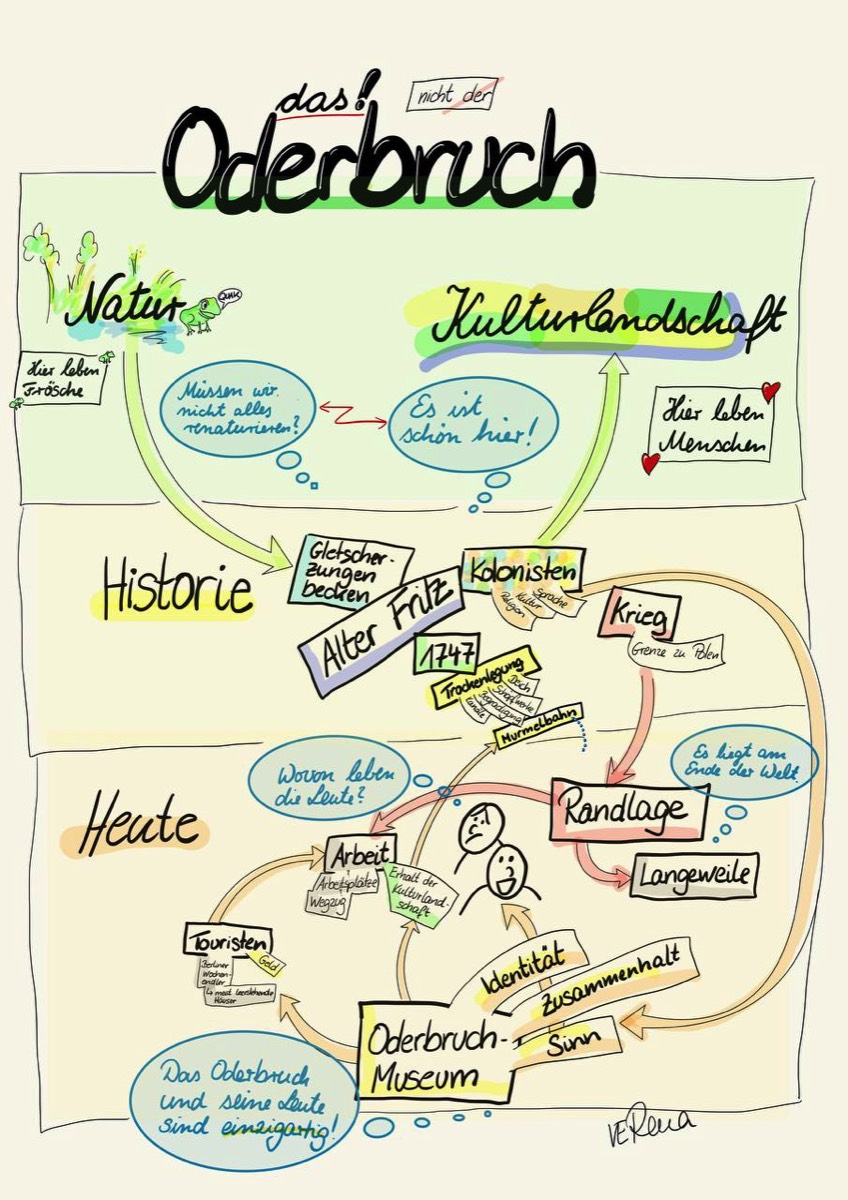 das!
nicht der
Oderbruch
Natur
Quak
Kulturlandschaft
Hier leben
Frösche
Müssen wir
nicht alles
renaturieren?
Es ist
schön hier!
Hier leben
Menschen
Historie
Gletscher-
zungen
becken
Alter Fritz
Kolonisten
Religion
Kultur
Sprache
Krieg
Grenze zu Polen
1747
Trockenlegung
Deich
Schöpfwerke
Begradigung
Kanäle
Murmelbahn
Heute
Wovon leben
die Leute?
Es liegt am
Ende der Welt
Randlage
Langeweile
Arbeit
Arbeitsplätze
Wegzug
Erhalt der
Kulturland-
schaft
Touristen
Geld
Berliner
Wochen-
endler
↳ meist leerstehende
Häuser
Identität
Zusammenhalt
Sinn
Oderbruch-
Museum
Das Oderbruch
und seine Leute
sind einzigartig!
VERena